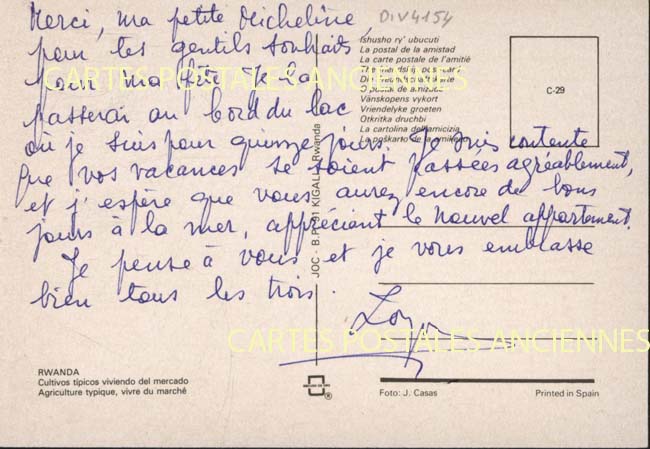 Merci, ma petite Micheline,
pour tes gentils souhaits
pour ma fête. Je la
passerai au bord du lac
où je suis pour quinze jours. Je suis contente
que vos vacances se soient passées agréablement,
et j'espère que vous aurez encore de bons
jours à la mer, appréciant le nouvel appartement.
Je pense à vous et je vous embrasse
bien tous les trois.
DIV4154
Ishusho ry' ubucuti
La postal de la amistad
La carte postale de l'amitié
The friendship postcard
Vänskapens vykort
Vriendelyke groeten
Otkritka druchbi
La cartolina dell'amicizia
C-29
JOC - B.P. 91 KIGALI - Rwanda
CARTES POSTALES ANCIENNES
CARTES POSTALES ANCIENNES
RWANDA
Cultivos típicos viviendo del mercado
Agriculture typique, vivre du marché
®
Foto: J. Casas
Printed in Spain